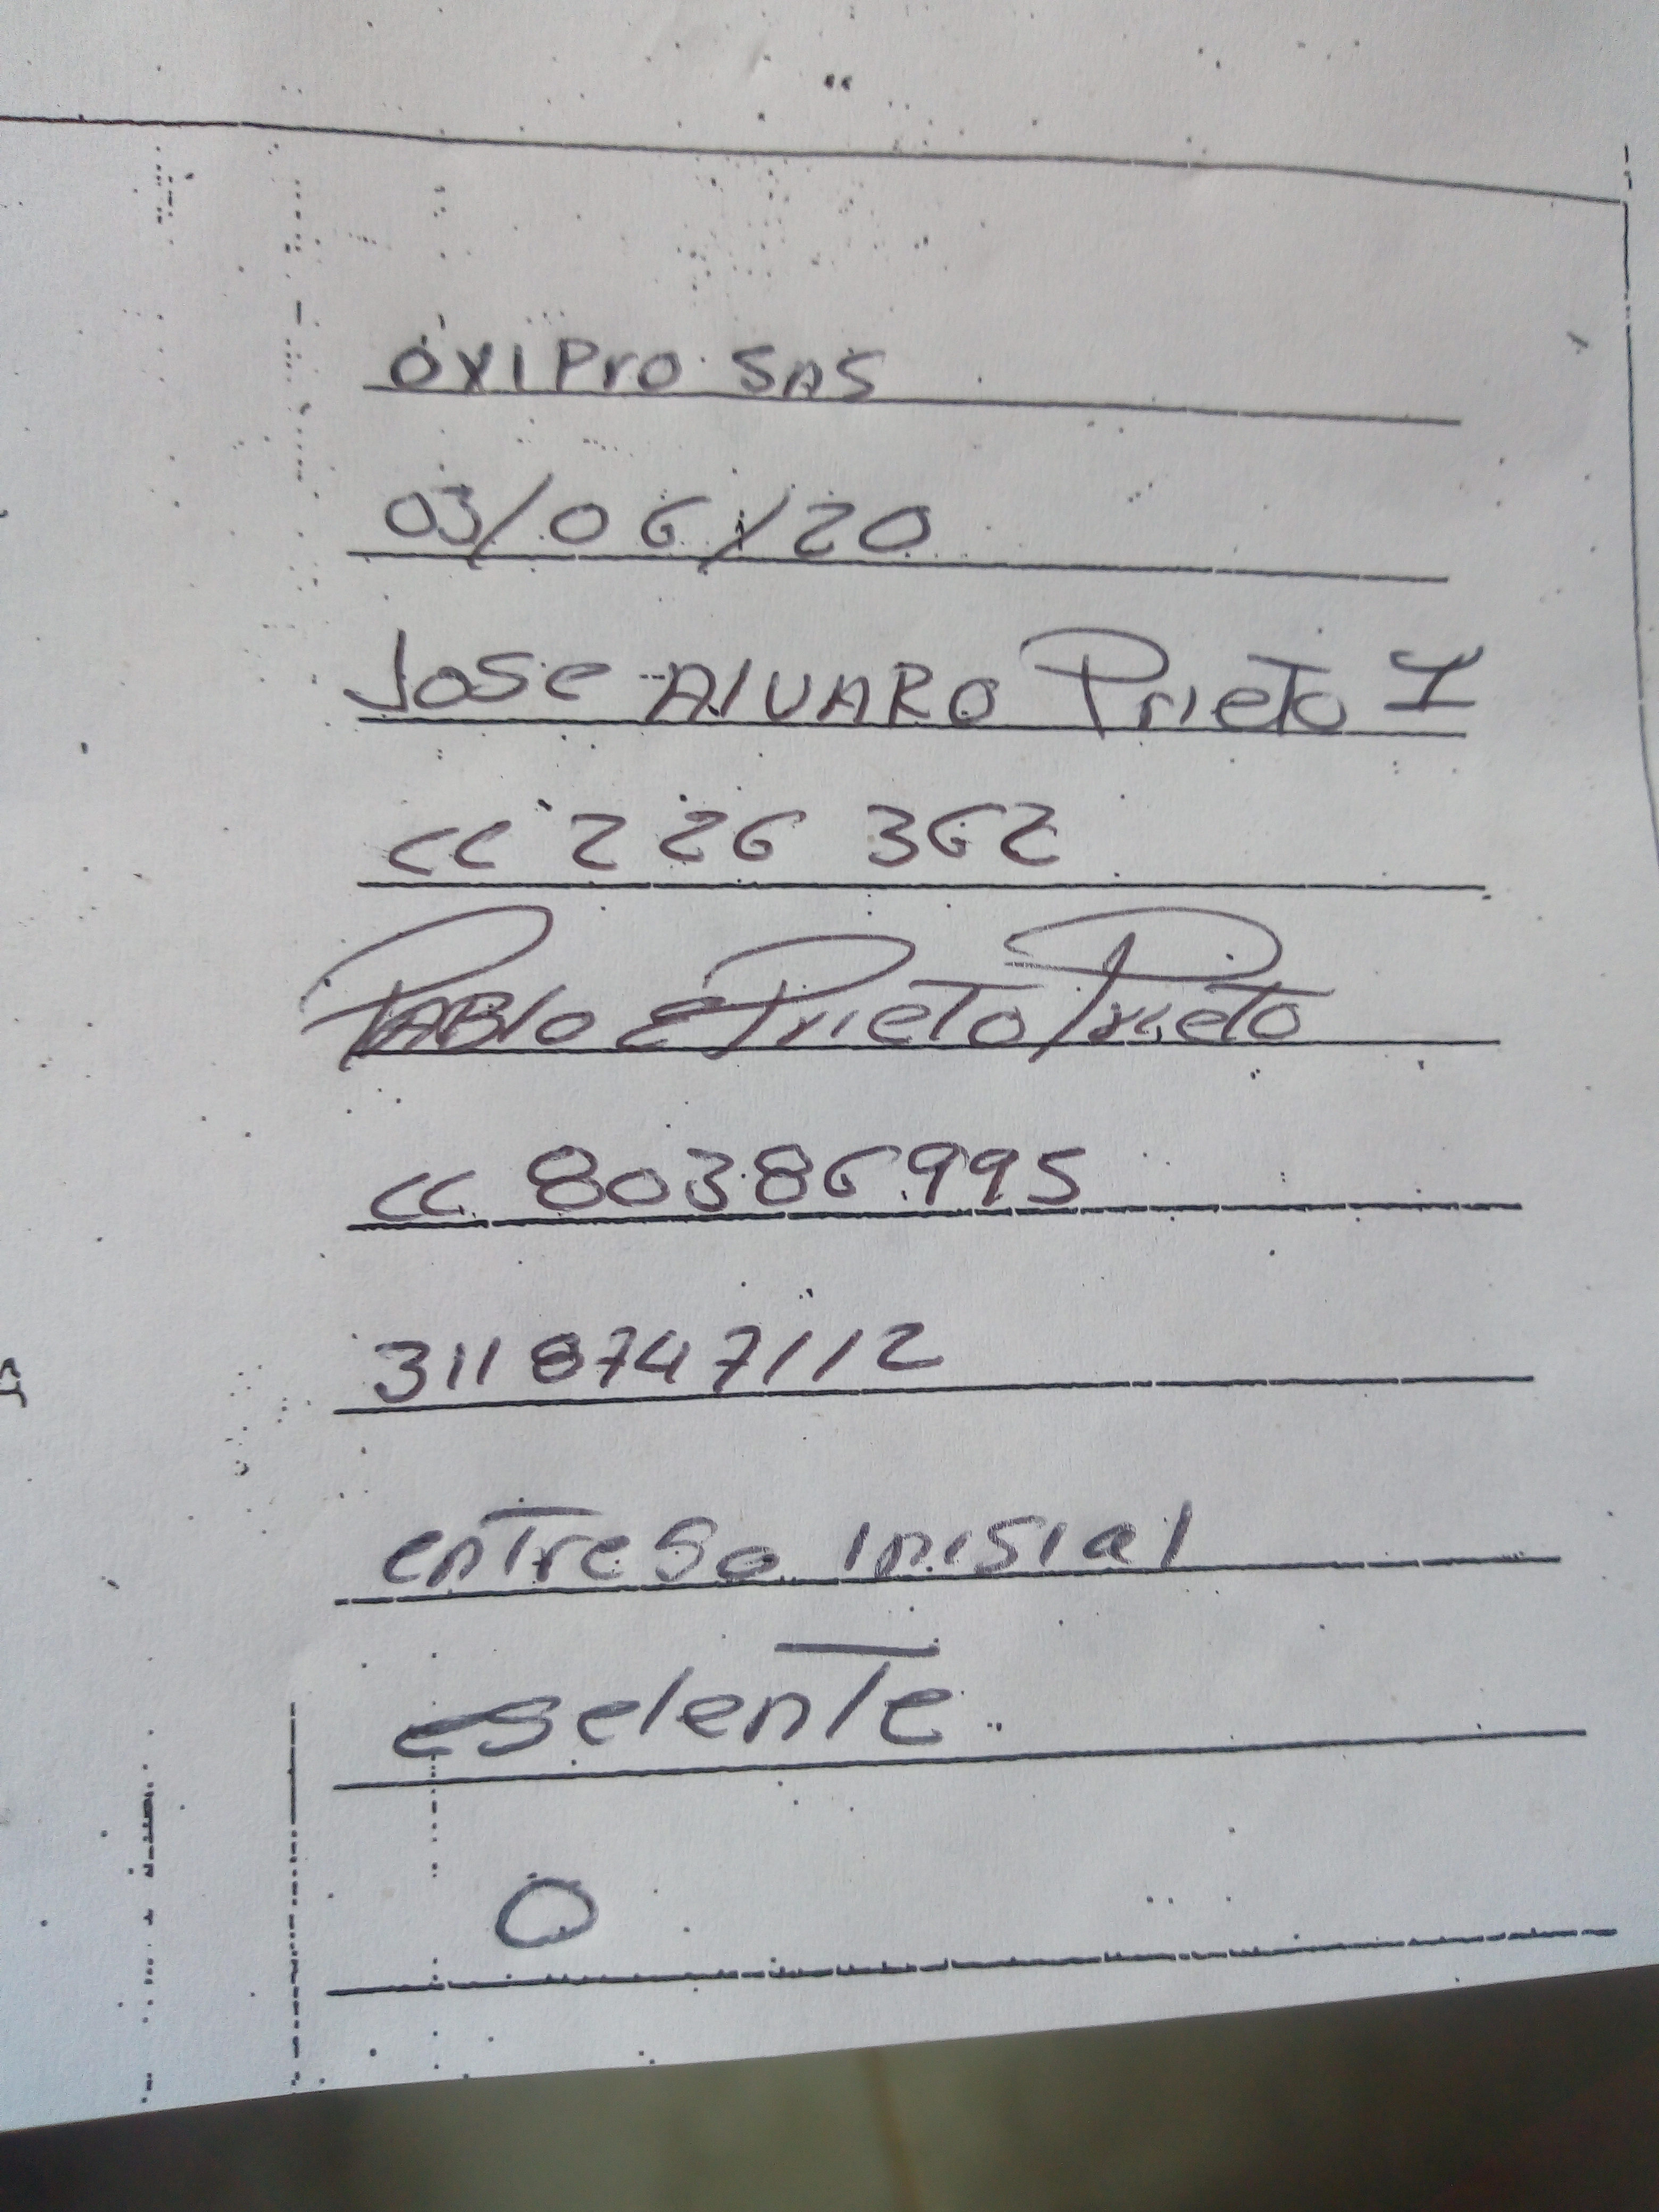 oxipro SAS
03/06/20
Jose Alvaro Prieto I
cc 226 362
Pablo E Prieto Prieto
cc 80386995
3118747112
entrega inisial
eselente
0